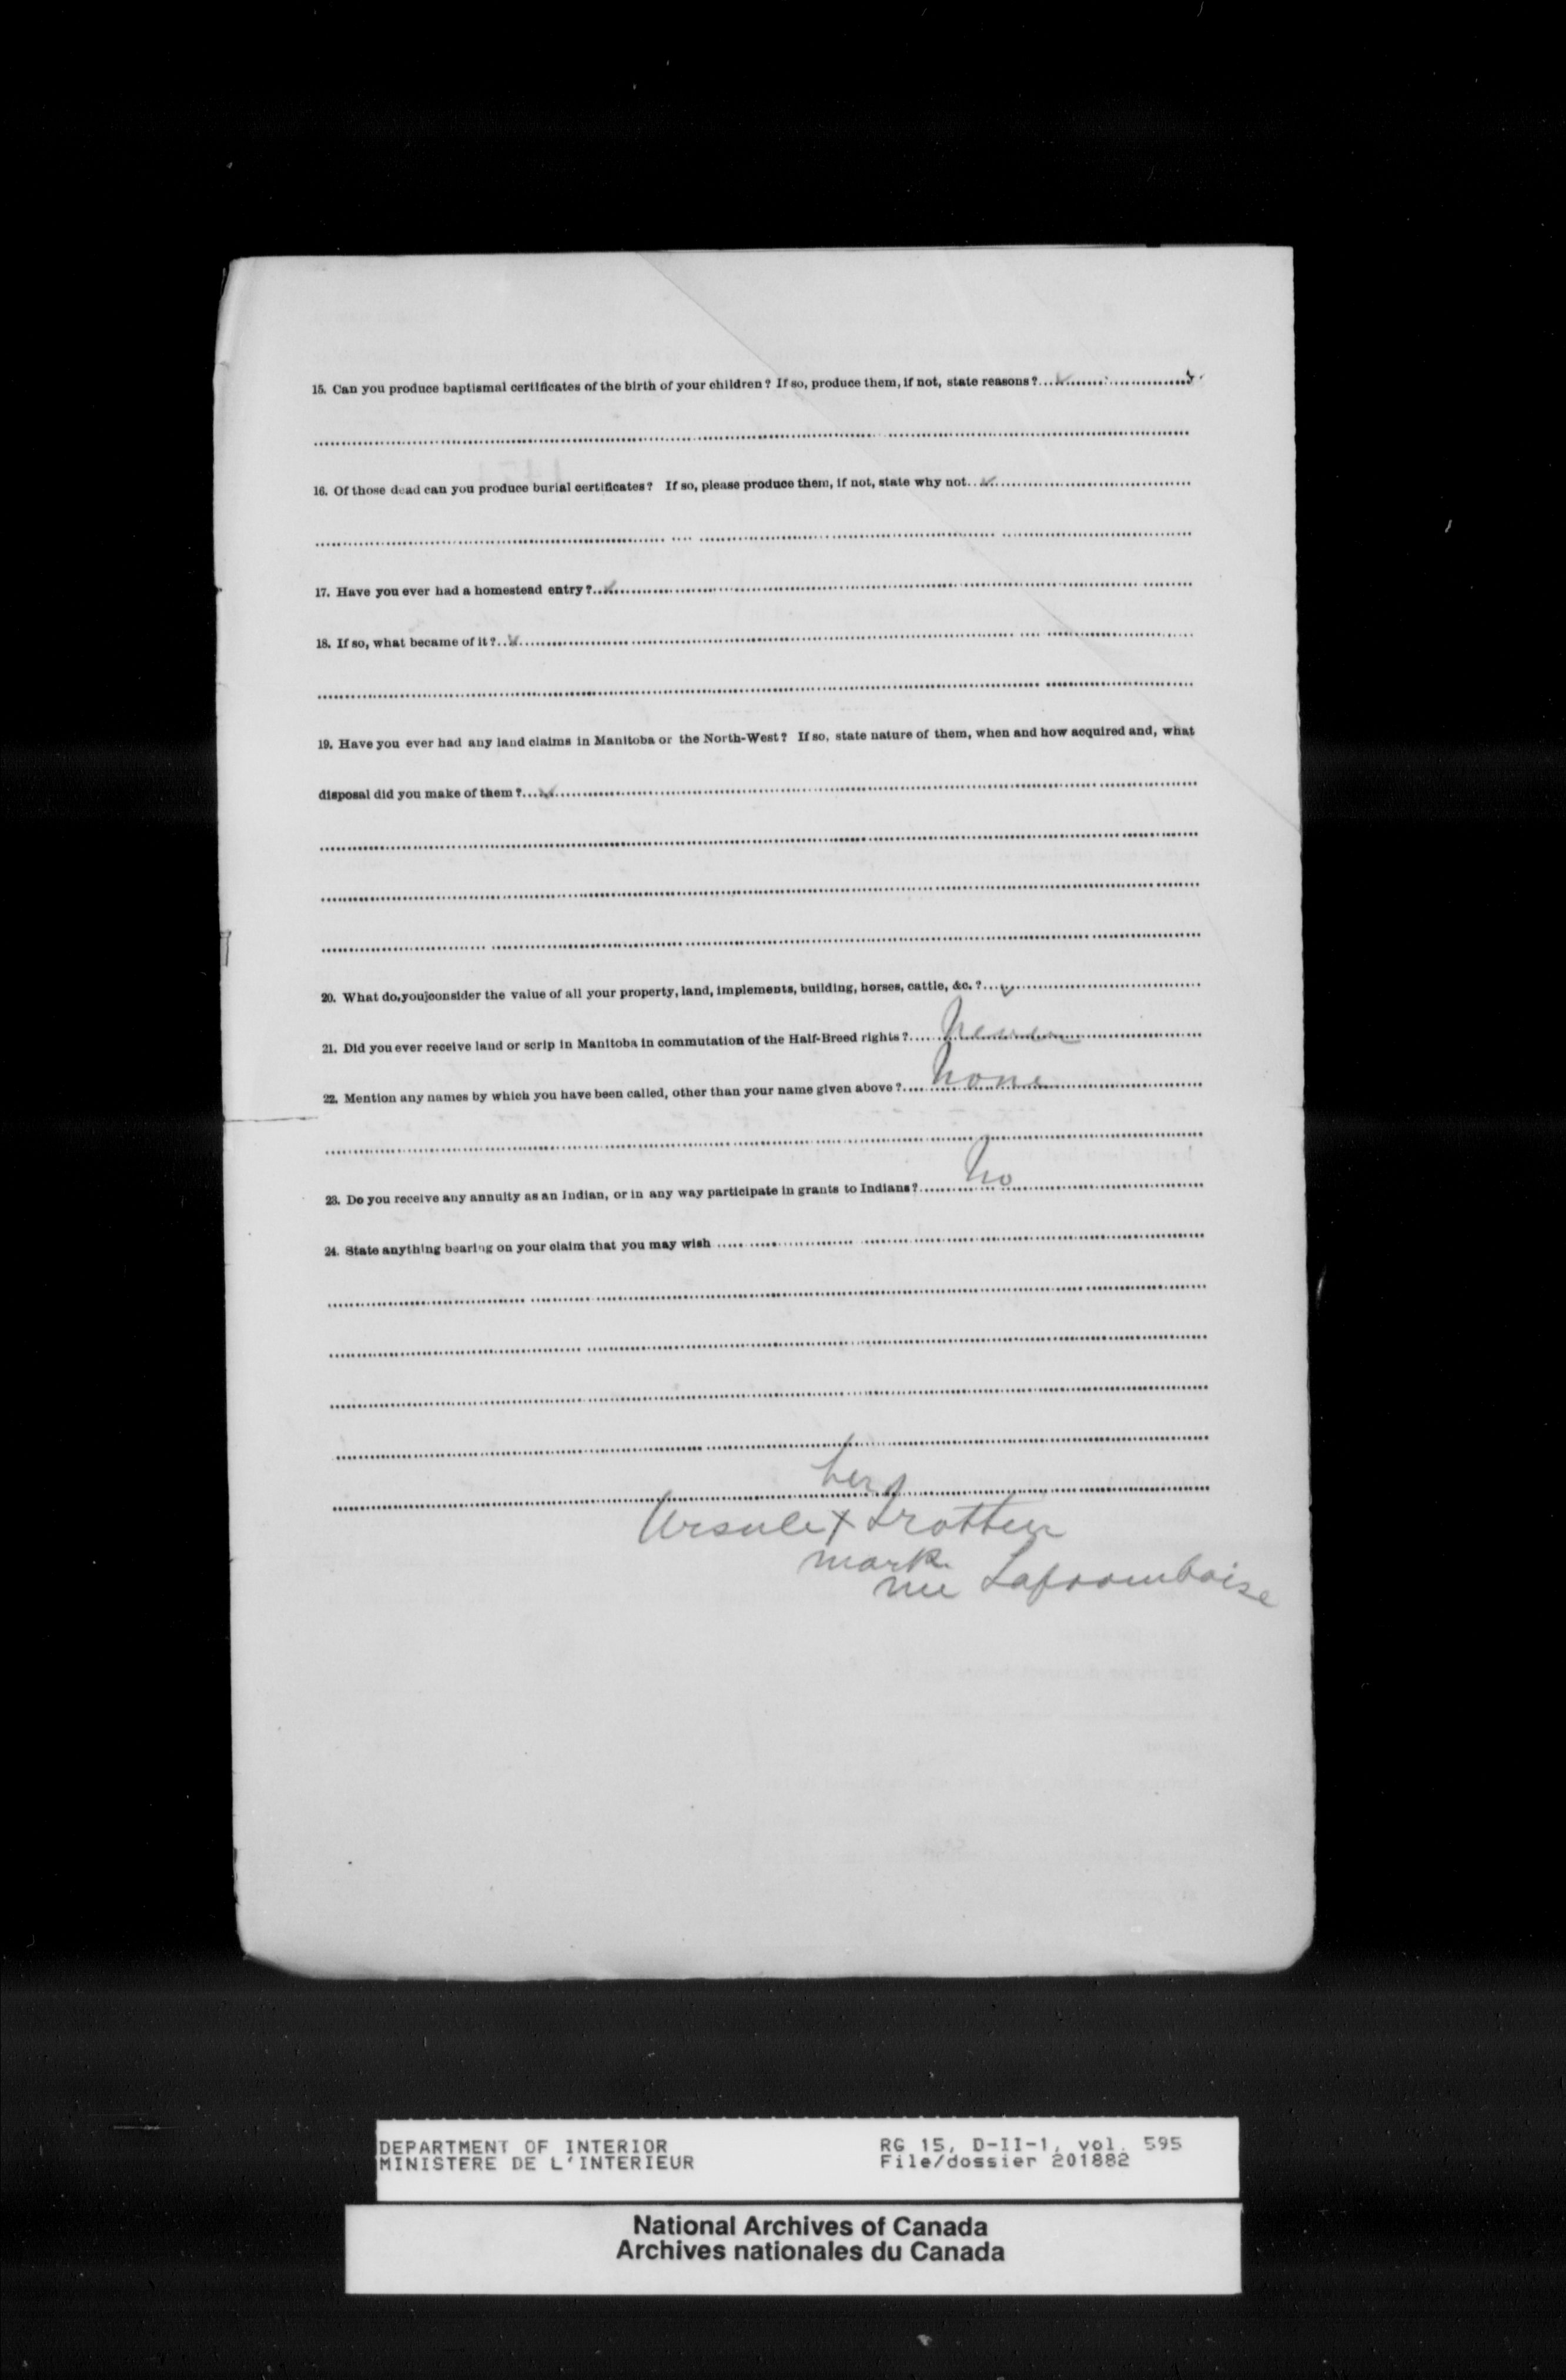 15. Can you produce baptismal certificates of the birth of your children? If so, produce them, if not, state reasons?
16. Of those dead can you produce burial certificates? If so, please produce them, if not, state why not
17. Have you ever had a homestead entry?
18. If so, what became of it?
19. Have you ever had any land claims in Manitoba or the North-West? If so, state nature of them, when and how acquired and, what
disposal did you make of them?
20. What do you consider the value of all your property, land, implements, building, horses, cattle, &c.?
21. Did you ever receive land or scrip in Manitoba in commutation of the Half-Breed rights?
22. Mention any names by which you have been called, other than your name given above? none
23. Do you receive any annuity as an Indian, or in any way participate in grants to Indians? No
24. State anything bearing on your claim that you may wish
her
Ursule X Trottier
mark
née Lafromboise
DEPARTMENT OF INTERIOR RG 15, D-II-1, vol. 595
MINISTERE DE L'INTERIEUR File/dossier 201882
National Archives of Canada
Archives nationales du Canada